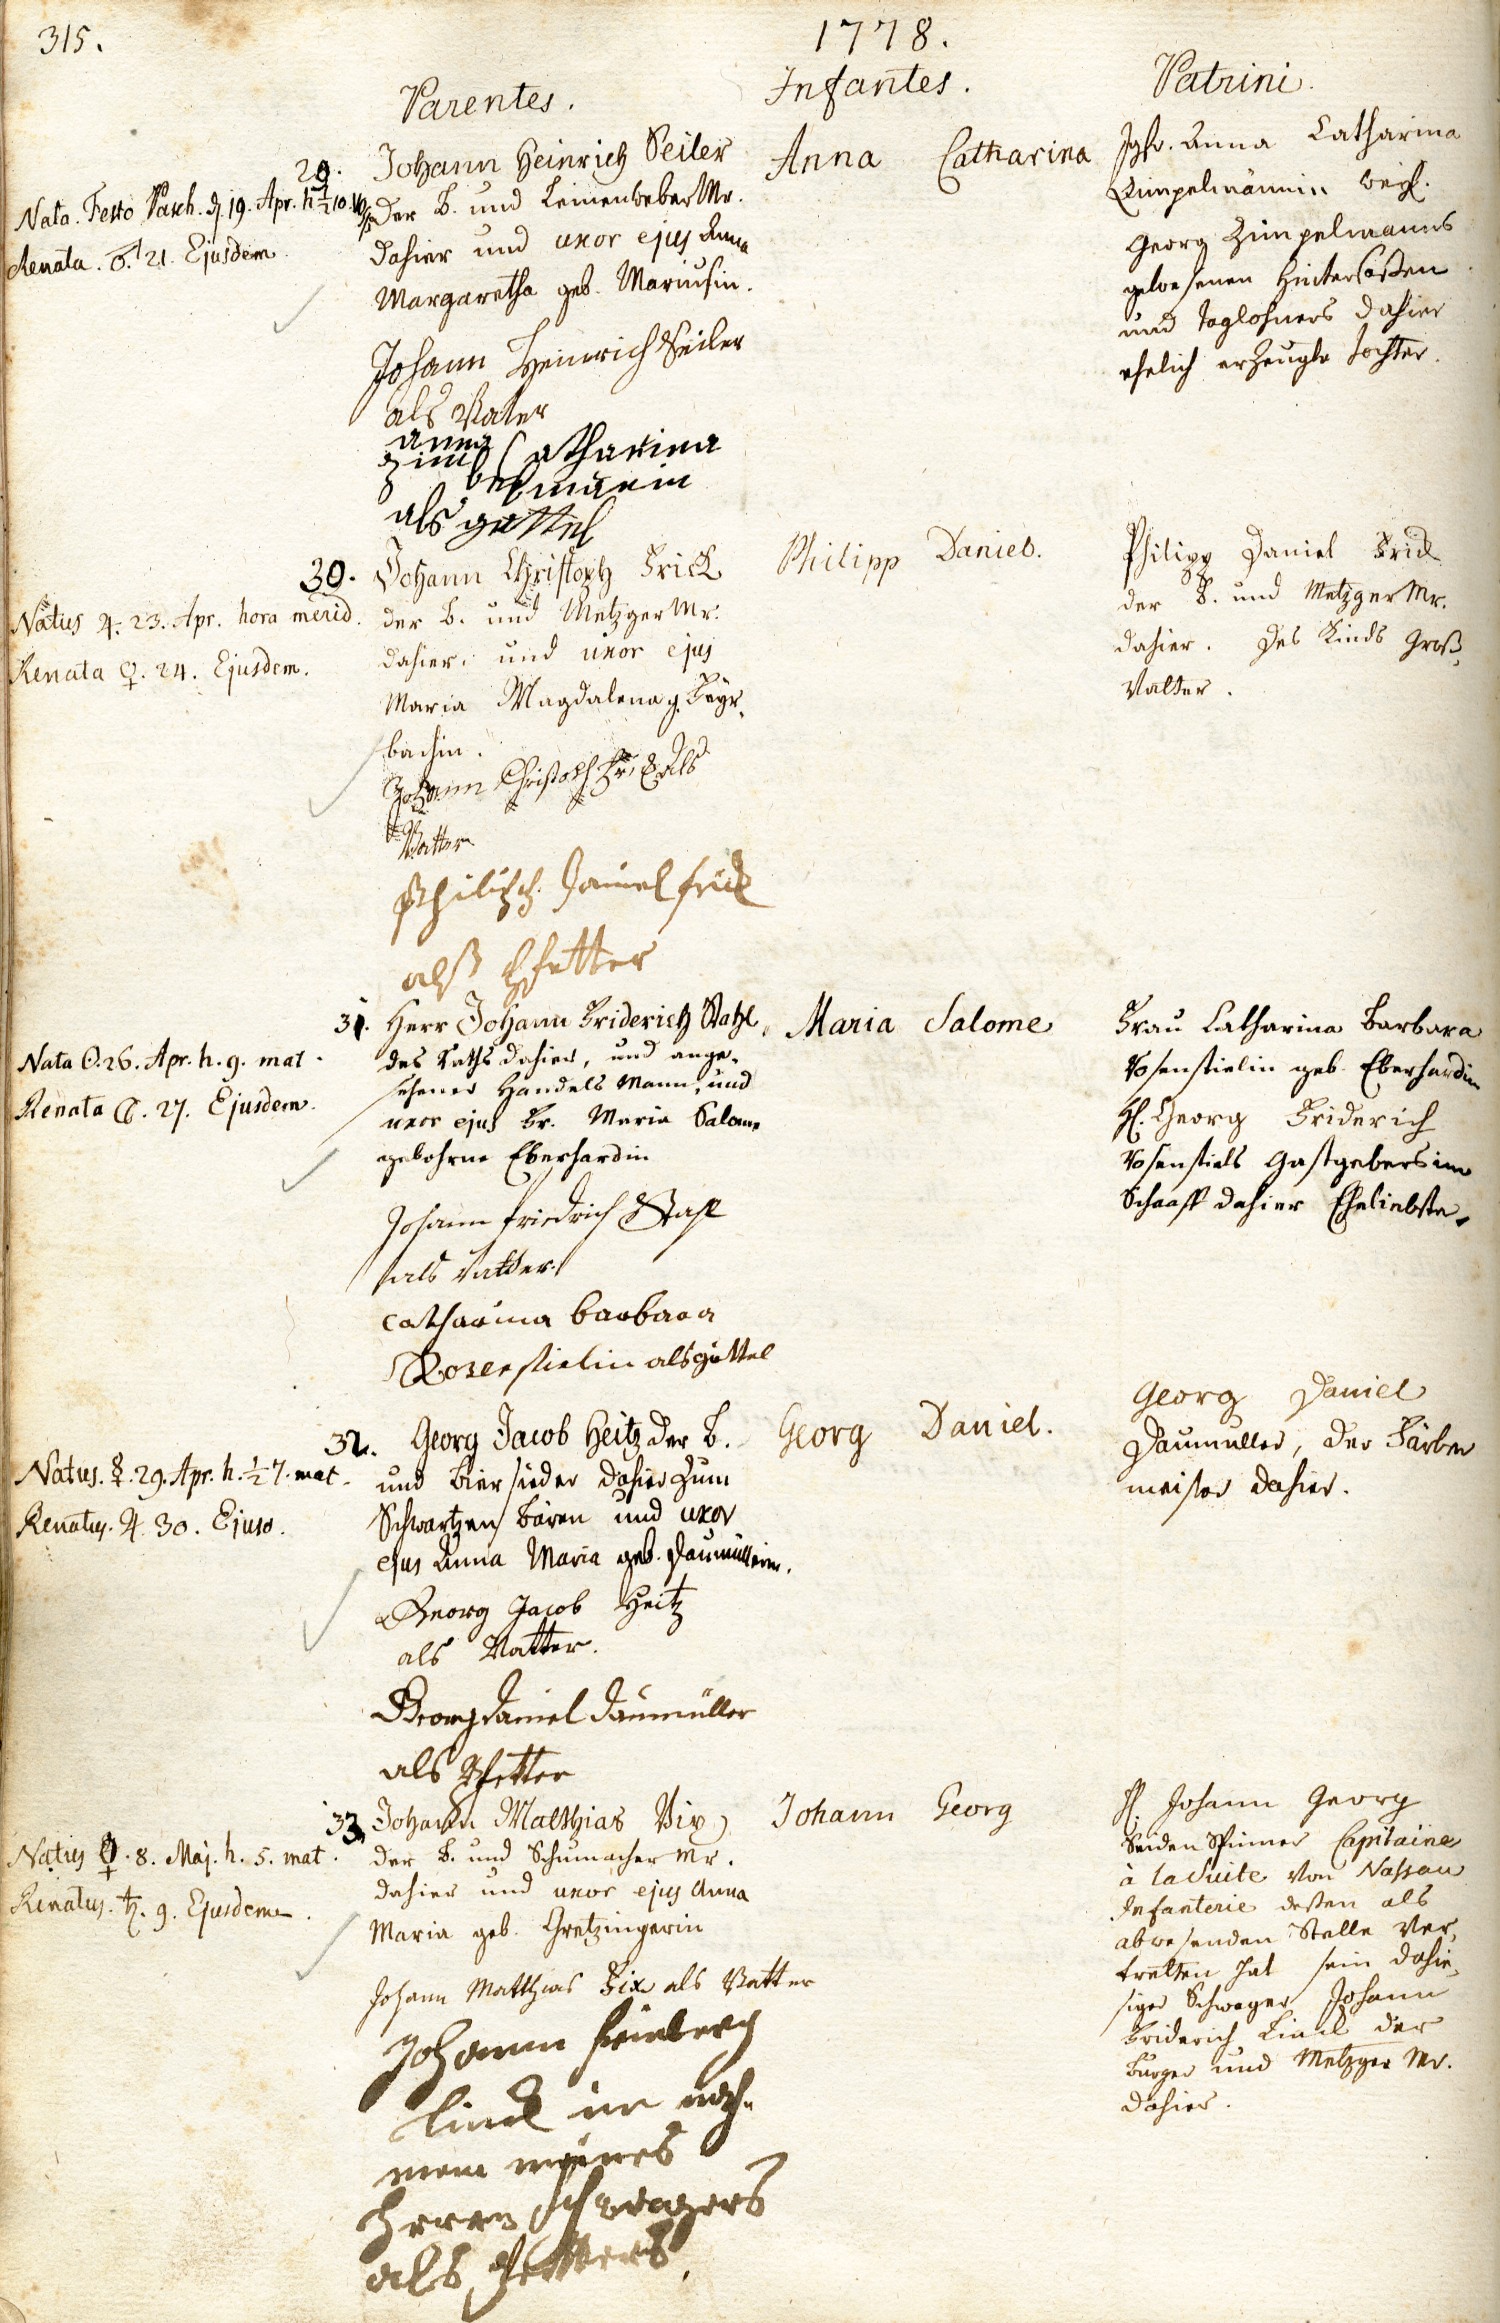 315.
1778.
Parentes.
Infantes.
Patrini.
29.
Nata. Festo Pasch. d. 19. Apr. h ½ 10.
Renata. ♂. 21. Ejusdem
Johann Heinrich Seiler
der B. und LeinenweberMr.
dahier und uxor ejus Anna
Margaretha geb. Mariusin.
Johann Heinrich Seiler
als Vater
anna Catharina
Zimbelmänin
als gettel
Anna Catharina
Jgfr. Anna Catharina
Zimpelmännin weil.
Georg Zimpelmanns
gewesenen Hintersaßen
und Taglohners dahier
ehelich erzeugte Tochter.
30.
Natus ♃. 23. Apr. hora merid.
Renata ♀. 24. Ejusdem.
Johann Christoph Frick
der B. und MetzgerMr.
dahier. und uxor ejus
Maria Magdalena g. Feyr-
bachin.
Johann Christoph Frick Als
Vatter
Philipp Daniel frick
alß Pfetter
Philipp Daniel.
Philipp Daniel Frick
der B. und MetzgerMr.
dahier. des Kinds Groß-
Vatter.
31.
Nata ☉. 26. Apr. h. 9. mat.
Renata ☾. 27. Ejusdem.
Herr Johann Friderich Stahl,
des Raths dahier, und ange-
sehener Handels Mann, und
uxor ejus Fr. Maria Salome
gebohrne Eberhardin
Johann Friedrich Stahl
als Vatter
Catharina barbara
Rosenstielin als gettel
Maria Salome
Frau Catharina Barbara
Rosenstielin geb. Eberhardin
H. Georg Friderich
Rosenstiels Gastgebers im
Schaaff dahier Eheliebste.
32.
Natus. ☿. 29. Apr. h. ½ 7. mat.
Renatus. ♃. 30. Ejusd.
Georg Jacob Heitz der B.
und Biersieder dahier zum
Schwartzen Bären und uxor
ejus Anna Maria geb. Daumüllerin.
Georg Jacob Heitz
als Vatter.
Georg Daniel Daumüller
als Pfetter
Georg Daniel.
Georg Daniel
Daumüller, der Färber
meister dahier.
33.
Natus ♀. 8. Maj. h. 5. mat.
Renatus. ♄. 9. Ejusdem.
Johann Matthias Vix
der B. und Schumacher Mr.
dahier und uxor ejus Anna
Maria geb. Gretzingerin
Johann Matthias Fix als Vatter
Johann friderich
Linck im nah-
men meines
Herrn Schwagers
als Pfetters.
Johann Georg
H. Johann Georg
Seiden Spinner Capitaine
à la Suite von Nassau
Infanterie deßen als
abwesenden Stelle ver-
tretten hat sein dahie-
siger Schwager Johann
Friderich Linck der
Burger und Metzger Mr.
dahier.